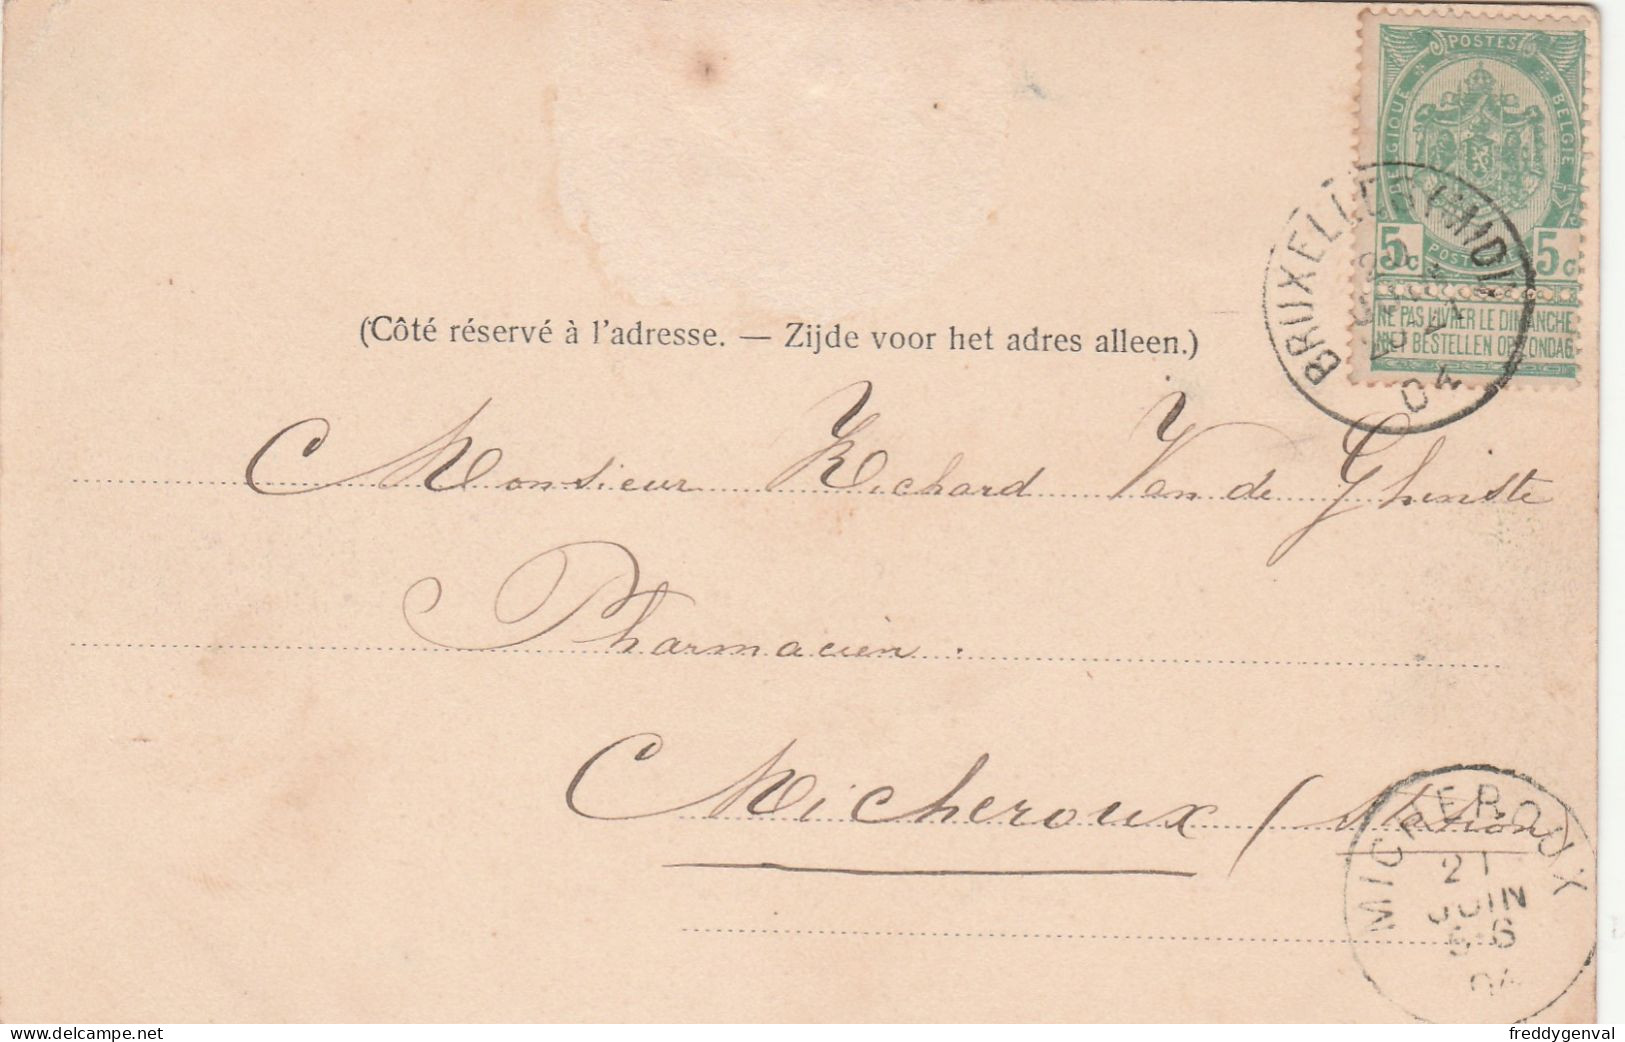 POSTES
BELGIQUE BELGIE
5c 5c
NE PAS LIVRER LE DIMANCHE
NIET BESTELLEN OP ZONDAG
BRUXELLES (MIDI)
04
(Côté réservé à l'adresse. — Zijde voor het adres alleen.)
Monsieur Richard Van de Ghinste
Pharmacien.
Micheroux (Station
MICHEROUX
21
JUIN
5-6
04
freddygenval